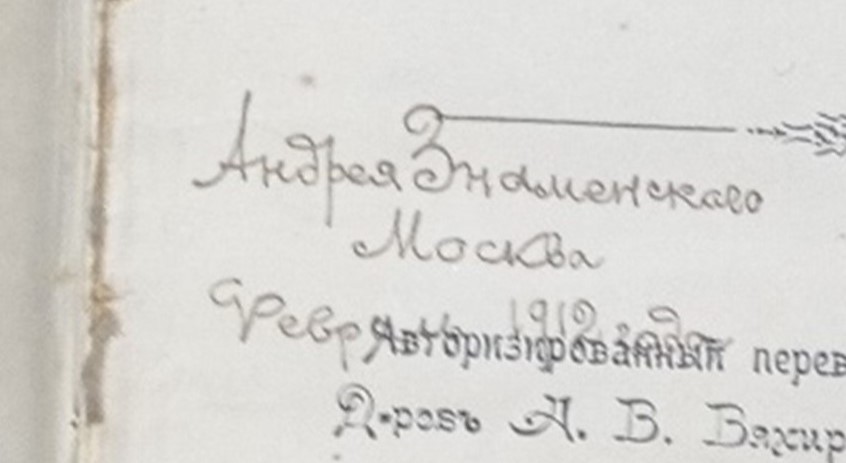 Андрея Знаменскаго
Москва
1912
Авторизированный перев
Д-ровъ А. В. Вяхир